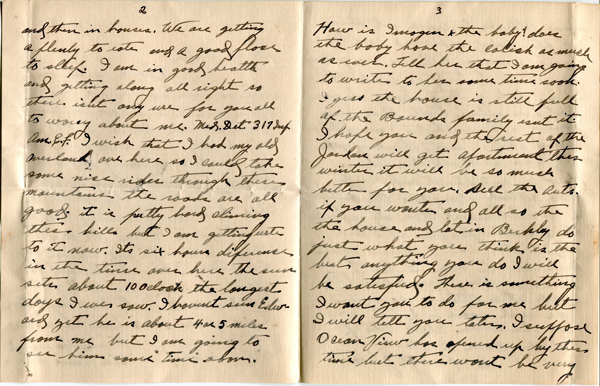 2
and then in houses. We are getting
a plenty to eate and a good place
to sleep. I am in good health
and getting along all right so
there isnt any use for you all
to worry about me. Med. Det. 317 Inf
Am. E.F. I wish that I had my old
overland over here so I could take
some nice rides through these
mountains the roads are all
good, it is pretty hard climing
these hills but I am getting use
to it now. Its six hours diference
in the time over here the sun
sets about 10 Oclock the longest
days I ever saw. I havent seen Edw-
ard yet he is about 4 or 5 miles
from me but I am going to
see him some time soon.
3
How is Imogen & the baby? does
the baby have the colick as much
as ever. Tell her that I am going
to write to her some time soon.
I gess the house is still full
of the Bounds family isnt it
I hope you and the rest of the
Jordan will get apartment this
winter it will be so much
better for you. Sell the Auto
if you want and all so the
the house and lot in Berkley do
just what you think is the
best anything you do I will
be satisfied. There is something
I want you to do for me but
I will tell you later. I suppose
Ocean View has opened up by this
time but there wont be very